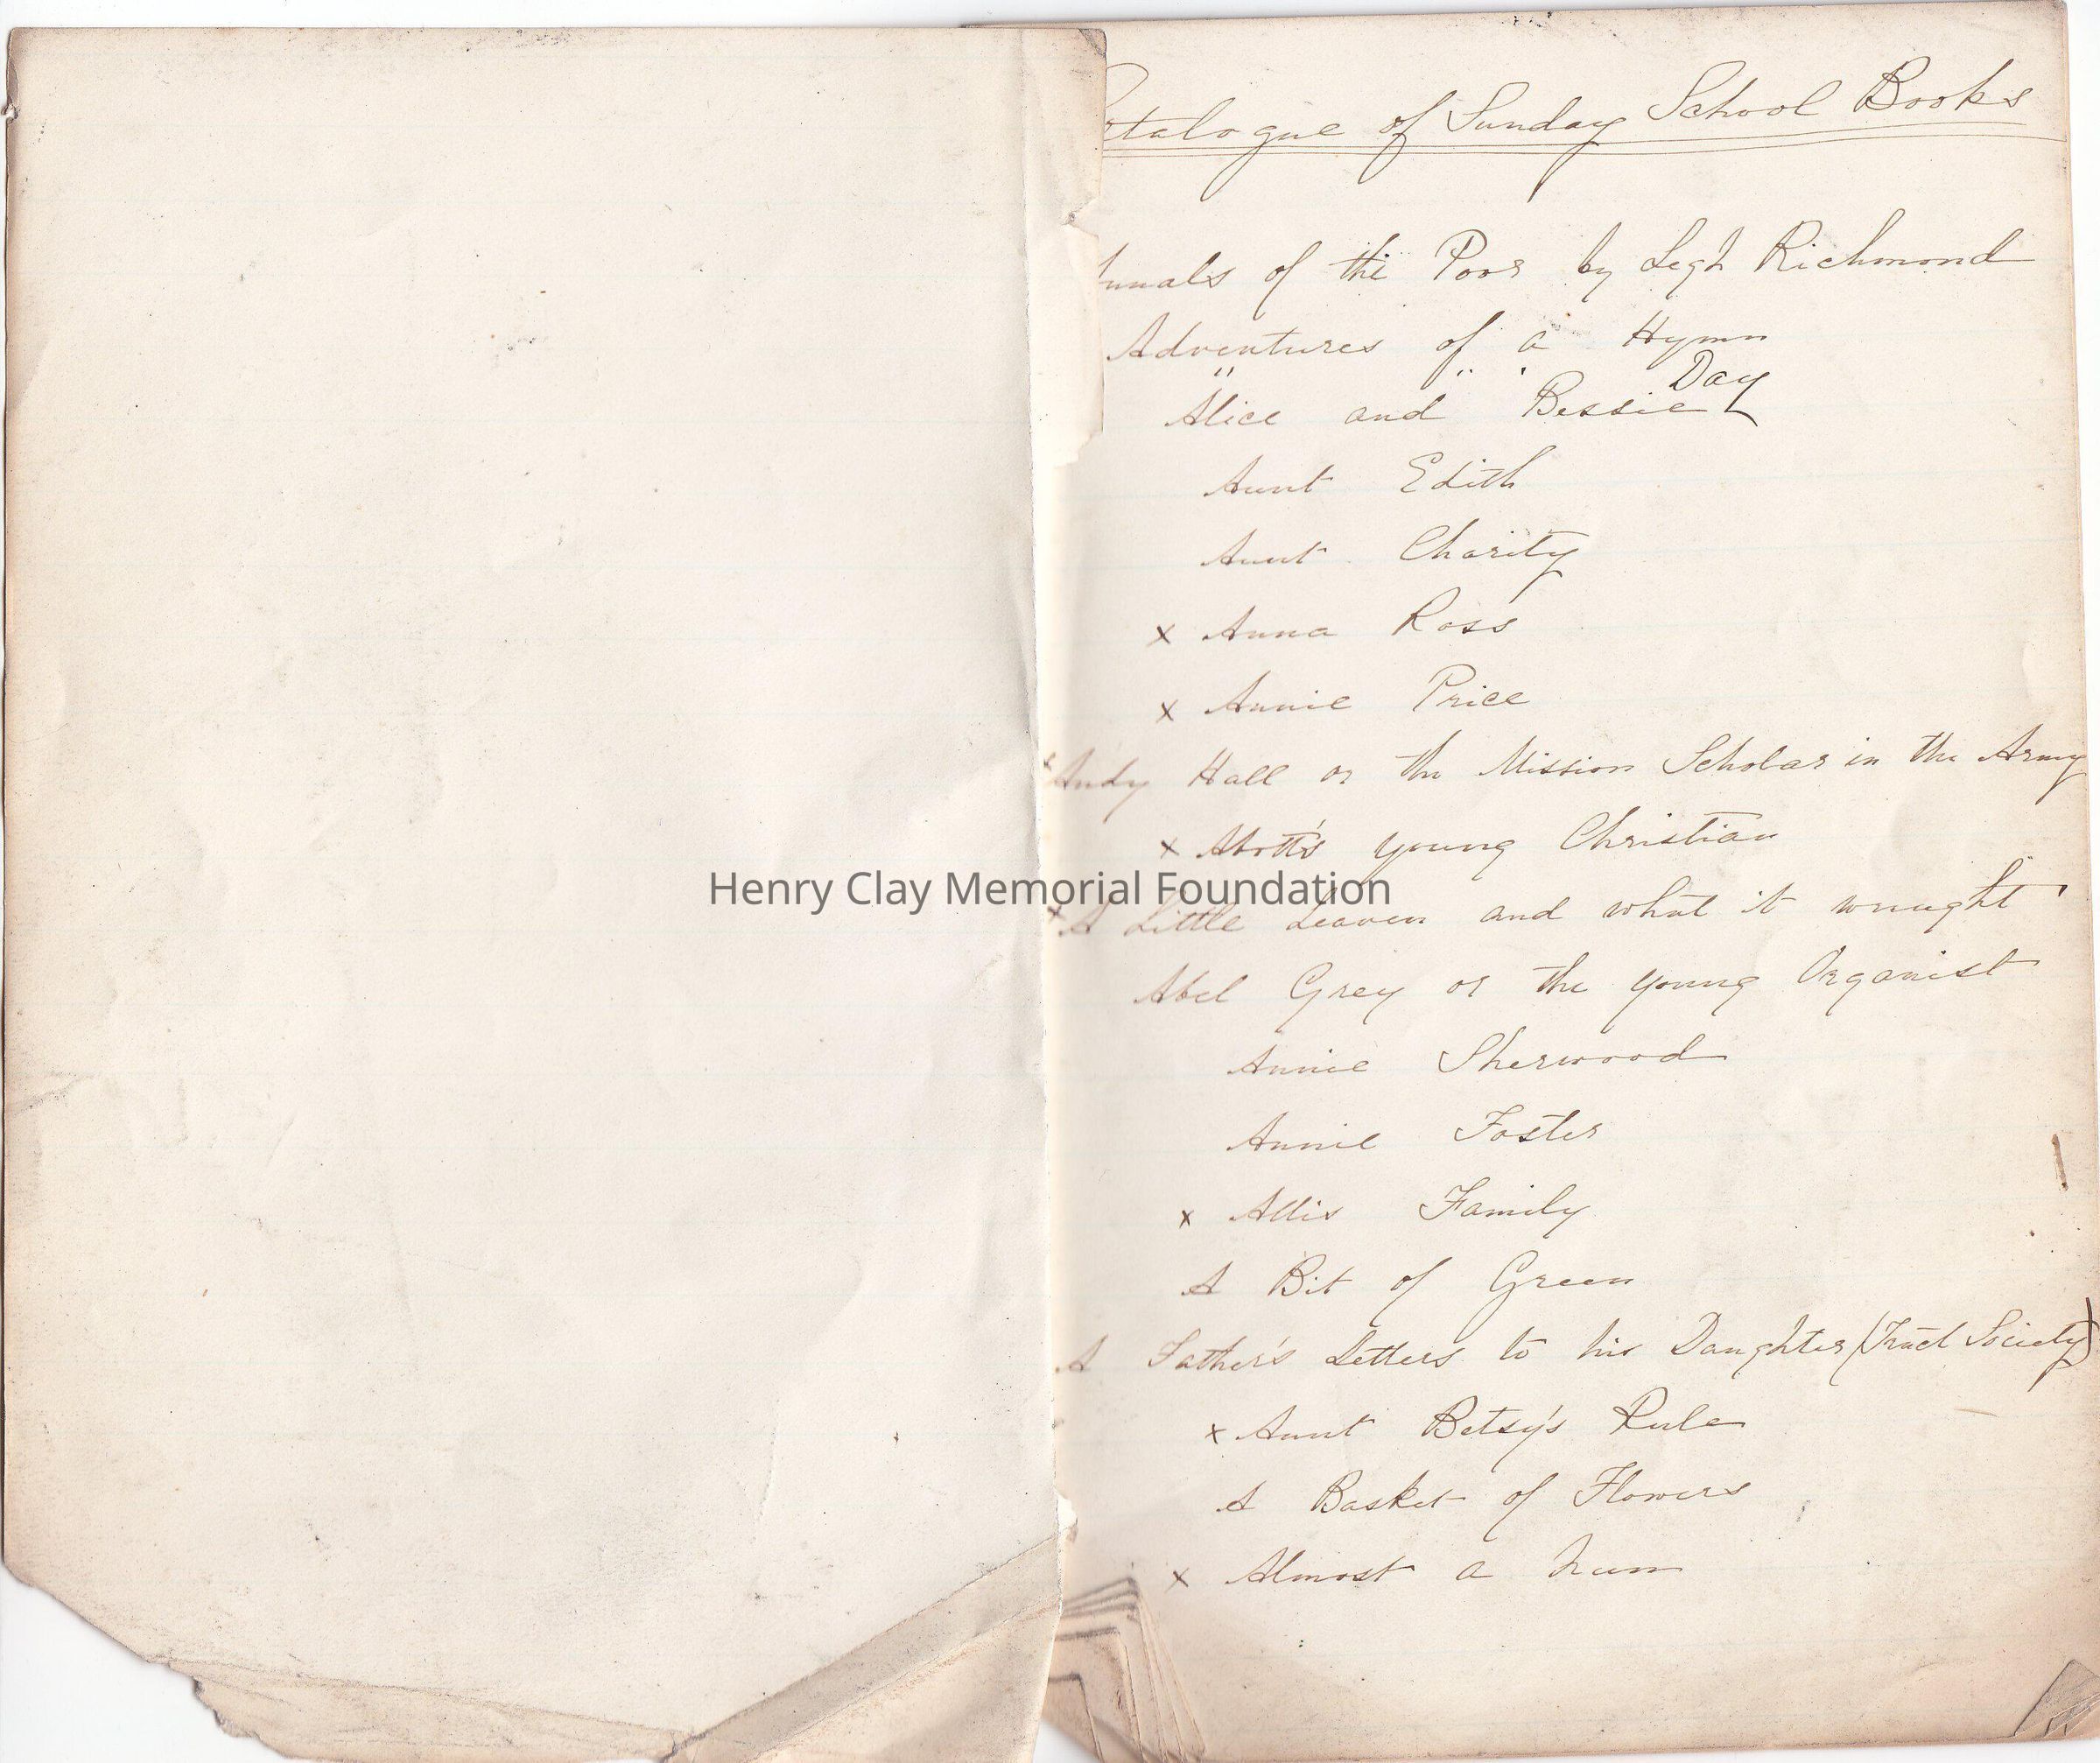 Catalogue of Sunday School Books
Annals of the Poor by Legh Richmond
Adventures of a Hymn
" " " Day
Alice and Bessie
Aunt Edith
Aunt Charity
x Anna Ross
x Annie Price
x Andy Hall or the Mission Scholar in the Army
x Abott's young Christian
Henry Clay Memorial Foundation
x A Little Leaven and what it wrought
Abel Grey or the young Organist
Annie Sherwood
Annie Foster
x Allis Family
A Bit of Green
A Father's Letters to his Daughter (Tract Society)
x Aunt Betsy's Rule
A Basket of Flowers
x Almost a Nun